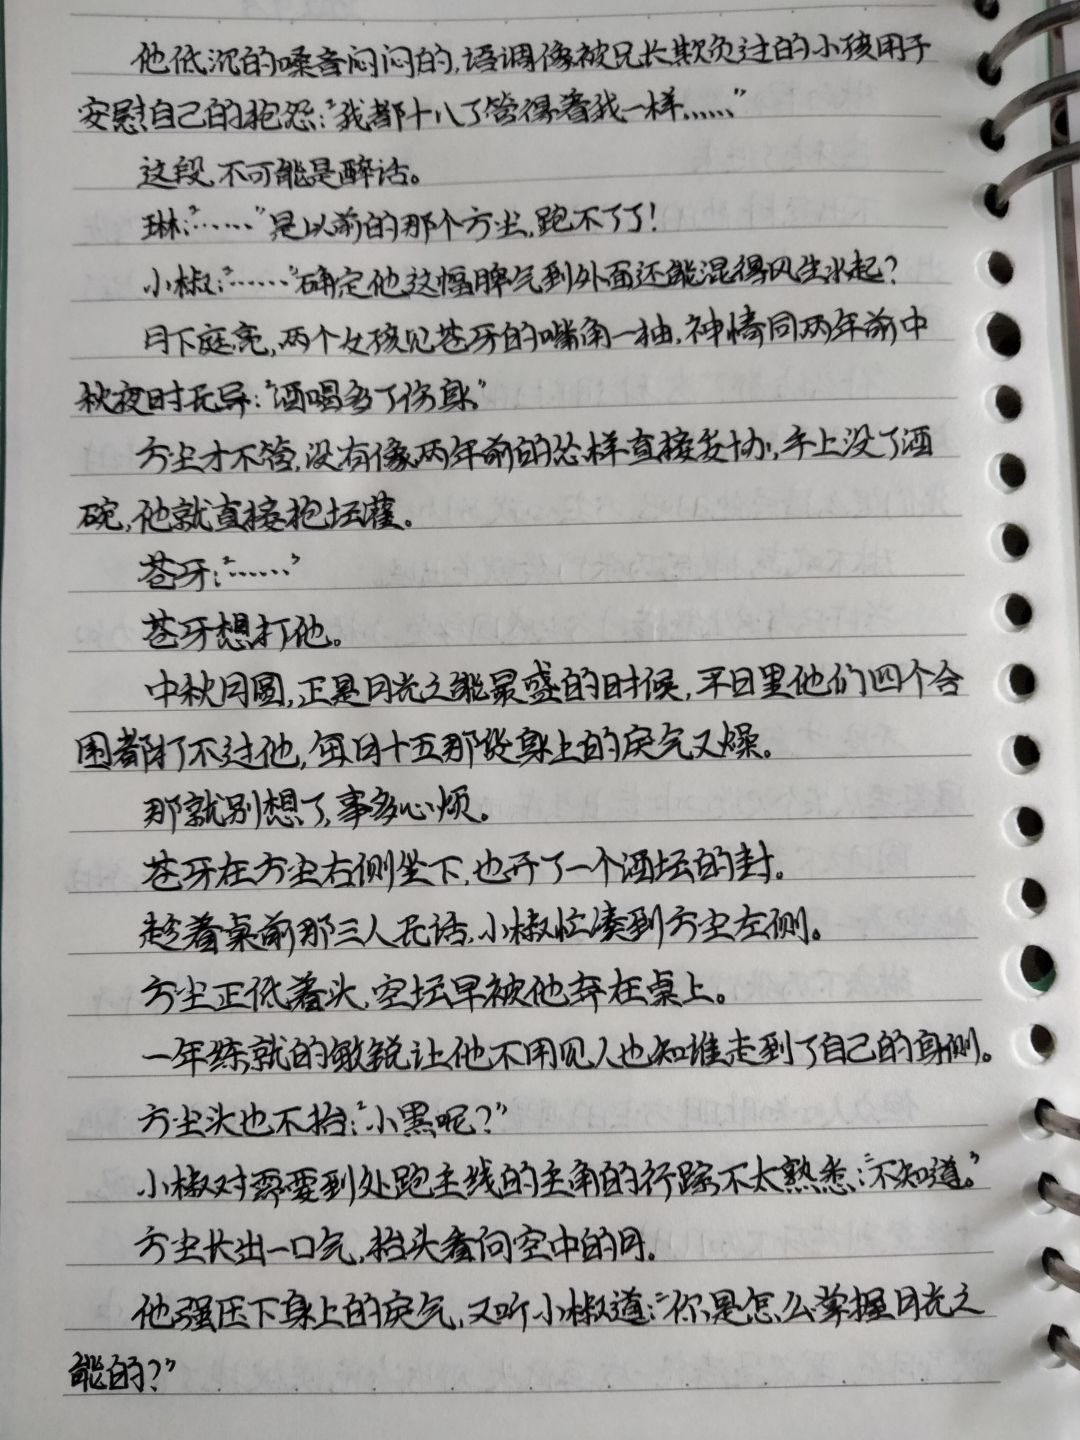 他低沉的嗓音闷闷的,语调像被兄长欺负过的小孩用于
安慰自己的抱怨:“我都十八了管得着我一样……”
这段,不可能是醉话。
琳:“……”是以前的那个方尘,跑不了了!
小椒:“……”确定他这幅脾气到外面还能混得风生水起?
月下庭亮,两个女孩见苍牙的嘴角一抽,神情同两年前中
秋夜时无异:“酒喝多了伤身。”
方尘才不管,没有像两年前的怂样直接妥协,手上没了酒
碗,他就直接抱坛灌。
苍牙:“……”
苍牙想打他。
中秋月圆,正是月光之能最盛的时候,平日里他们四个合
围都打不过他,每月十五那段身上的戾气又燥。
那就别想了,事多心烦。
苍牙在方尘右侧坐下,也开了一个酒坛的封。
趁着桌前那三人无话,小椒忙凑到方尘左侧。
方尘正低着头,空坛早被他弃在桌上。
一年练就的敏锐让他不用见人也知谁走到了自己的身侧。
方尘头也不抬:“小黑呢?”
小椒对需要到处跑主线的主角的行踪不太熟悉:“不知道。”
方尘长出一口气,抬头看向空中的月。
他强压下身上的戾气,又听小椒道:“你是怎么掌握月光之
能的?”